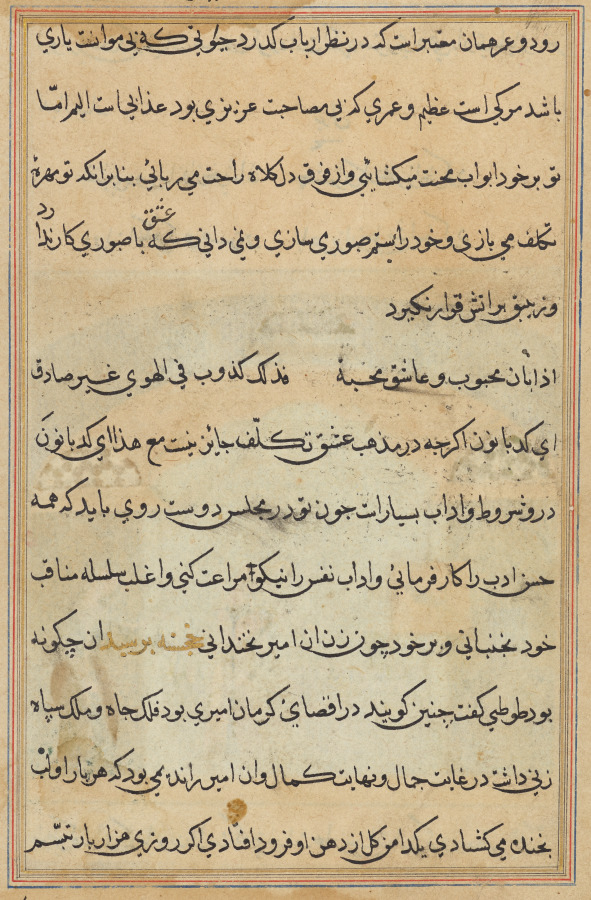 رود و عمر همان معتبر است که در نظر ارباب گذرد جوانی که بی موانست یاری
باشد مرکی است عظیم و عمری که بی مصاحبت عزیزی بود عذابی است الیم امّا
تو بر خود ابواب محنت میکشائی و از فرق دل کلاه راحت می ربائی بنابر انکه تو بهرهٔ
تکلف می بازی و خود را بستم صبوری سازی و نمی دانی که عشق با صبوری کار ندارد
و زیبق بر اتش قرار نکیرد
اذا بان محبوب و عاشق محبه فذلک کذوب فی الهوی غیر صادق
ای کدبانون اکرچه در مذهب عشق تکلّف جایز نیست مع هذا ای کدبانون
درو شروط و اداب بسیار است جون تو در مجلس دوست روی باید که همه
حسن ادب را کار فرمائی و اداب نفس را نیکو مراعت کنی و اغلب سلسله مناقب
خود بجنبانی و بر خود چون زن ان امیر نخندانی خجسته برسید ان چکونه
بود طوطی کفت چنین کویند در اقصای کرمان امیری بود فلک جاه و ملک سپاه
زنی داشت در غایت جمال و نهایت کمال و ان امیر را ندیمی بود که هر بار او لب
بخنده می کشادی یکدامن کل از دهن او فرود افتادی اکر روزی هزار بار تبسّم